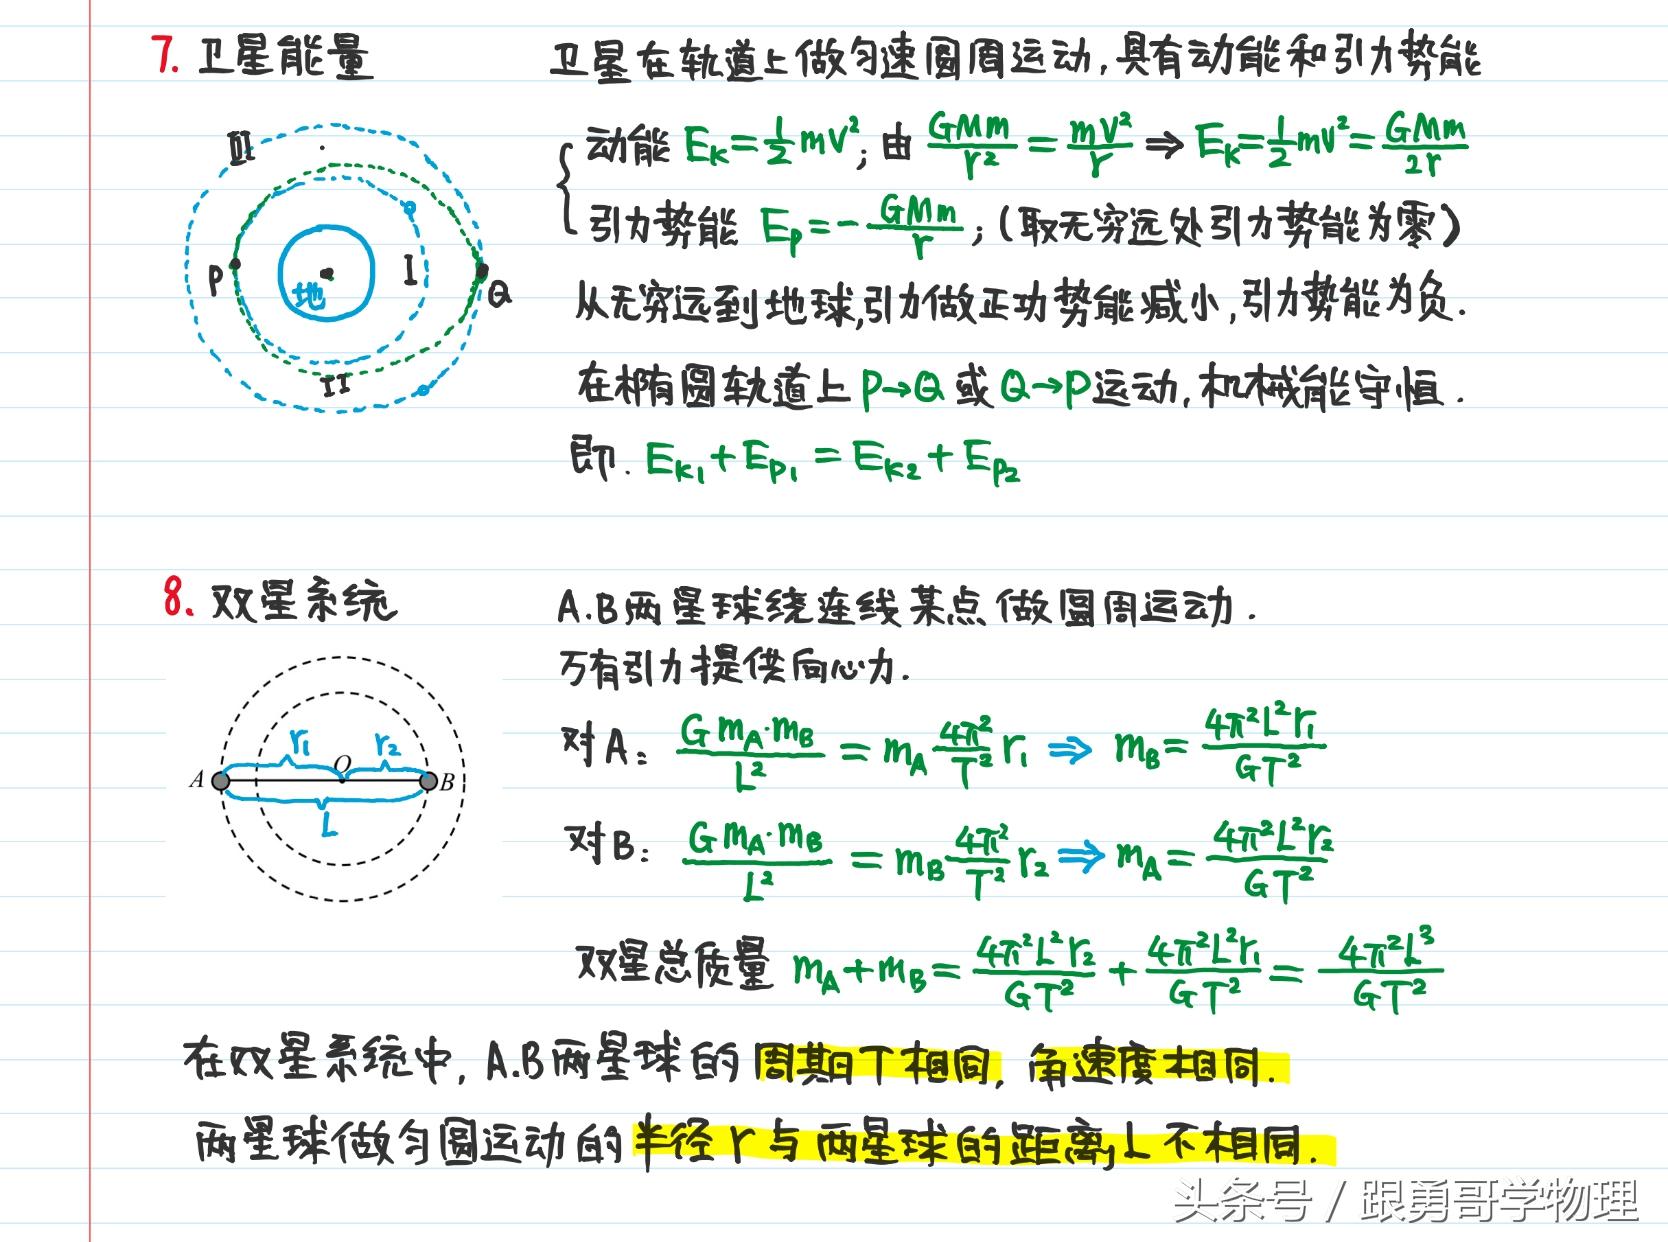 7. 卫星能量
卫星在轨道上做匀速圆周运动,具有动能和引力势能
动能 Eₖ=½mv²; 由 GMm/r² = mv²/r ⇒ Eₖ=½mv²=GMm/2r
引力势能 Eₚ=-GMm/r; (取无穷远处引力势能为零)
从无穷远到地球,引力做正功势能减小,引力势能为负.
在椭圆轨道上 P→Q 或 Q→P运动,机械能守恒.
即. Eₖ₁+Eₚ₁ = Eₖ₂+Eₚ₂
III
P
地
I
Q
II
8. 双星系统
A.B两星球绕连线某点做圆周运动.
万有引力提供向心力.
对A: Gm_A·m_B/L² = m_A 4π²/T² r₁ ⇒ m_B = 4π²L²r₁/GT²
对B: Gm_A·m_B/L² = m_B 4π²/T² r₂ ⇒ m_A = 4π²L²r₂/GT²
双星总质量 m_A+m_B = 4π²L²r₂/GT² + 4π²L²r₁/GT² = 4π²L³/GT²
r₁ r₂
A O B
L
在双星系统中, A.B两星球的周期T相同, 角速度相同.
两星球做匀圆运动的半径r与两星球的距离L不相同.
头条号 / 跟勇哥学物理